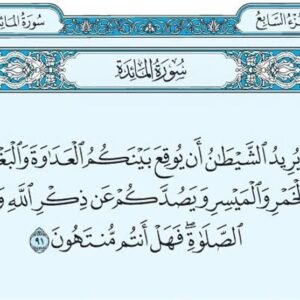 زءُ السَّابِع سُورَةُ المَائ
سُورَةُ المَائِدَة
يُرِيدُ الشَّيْطَٰنُ أَن يُوقِعَ بَيْنَكُمُ الْعَدَٰوَةَ وَالْبَغ
لْخَمْرِ وَالْمَيْسِرِ وَيَصُدَّكُمْ عَن ذِكْرِ اللَّهِ وَ
الصَّلَوٰةِۖ فَهَلْ أَنتُم مُّنتَهُونَ ٩١